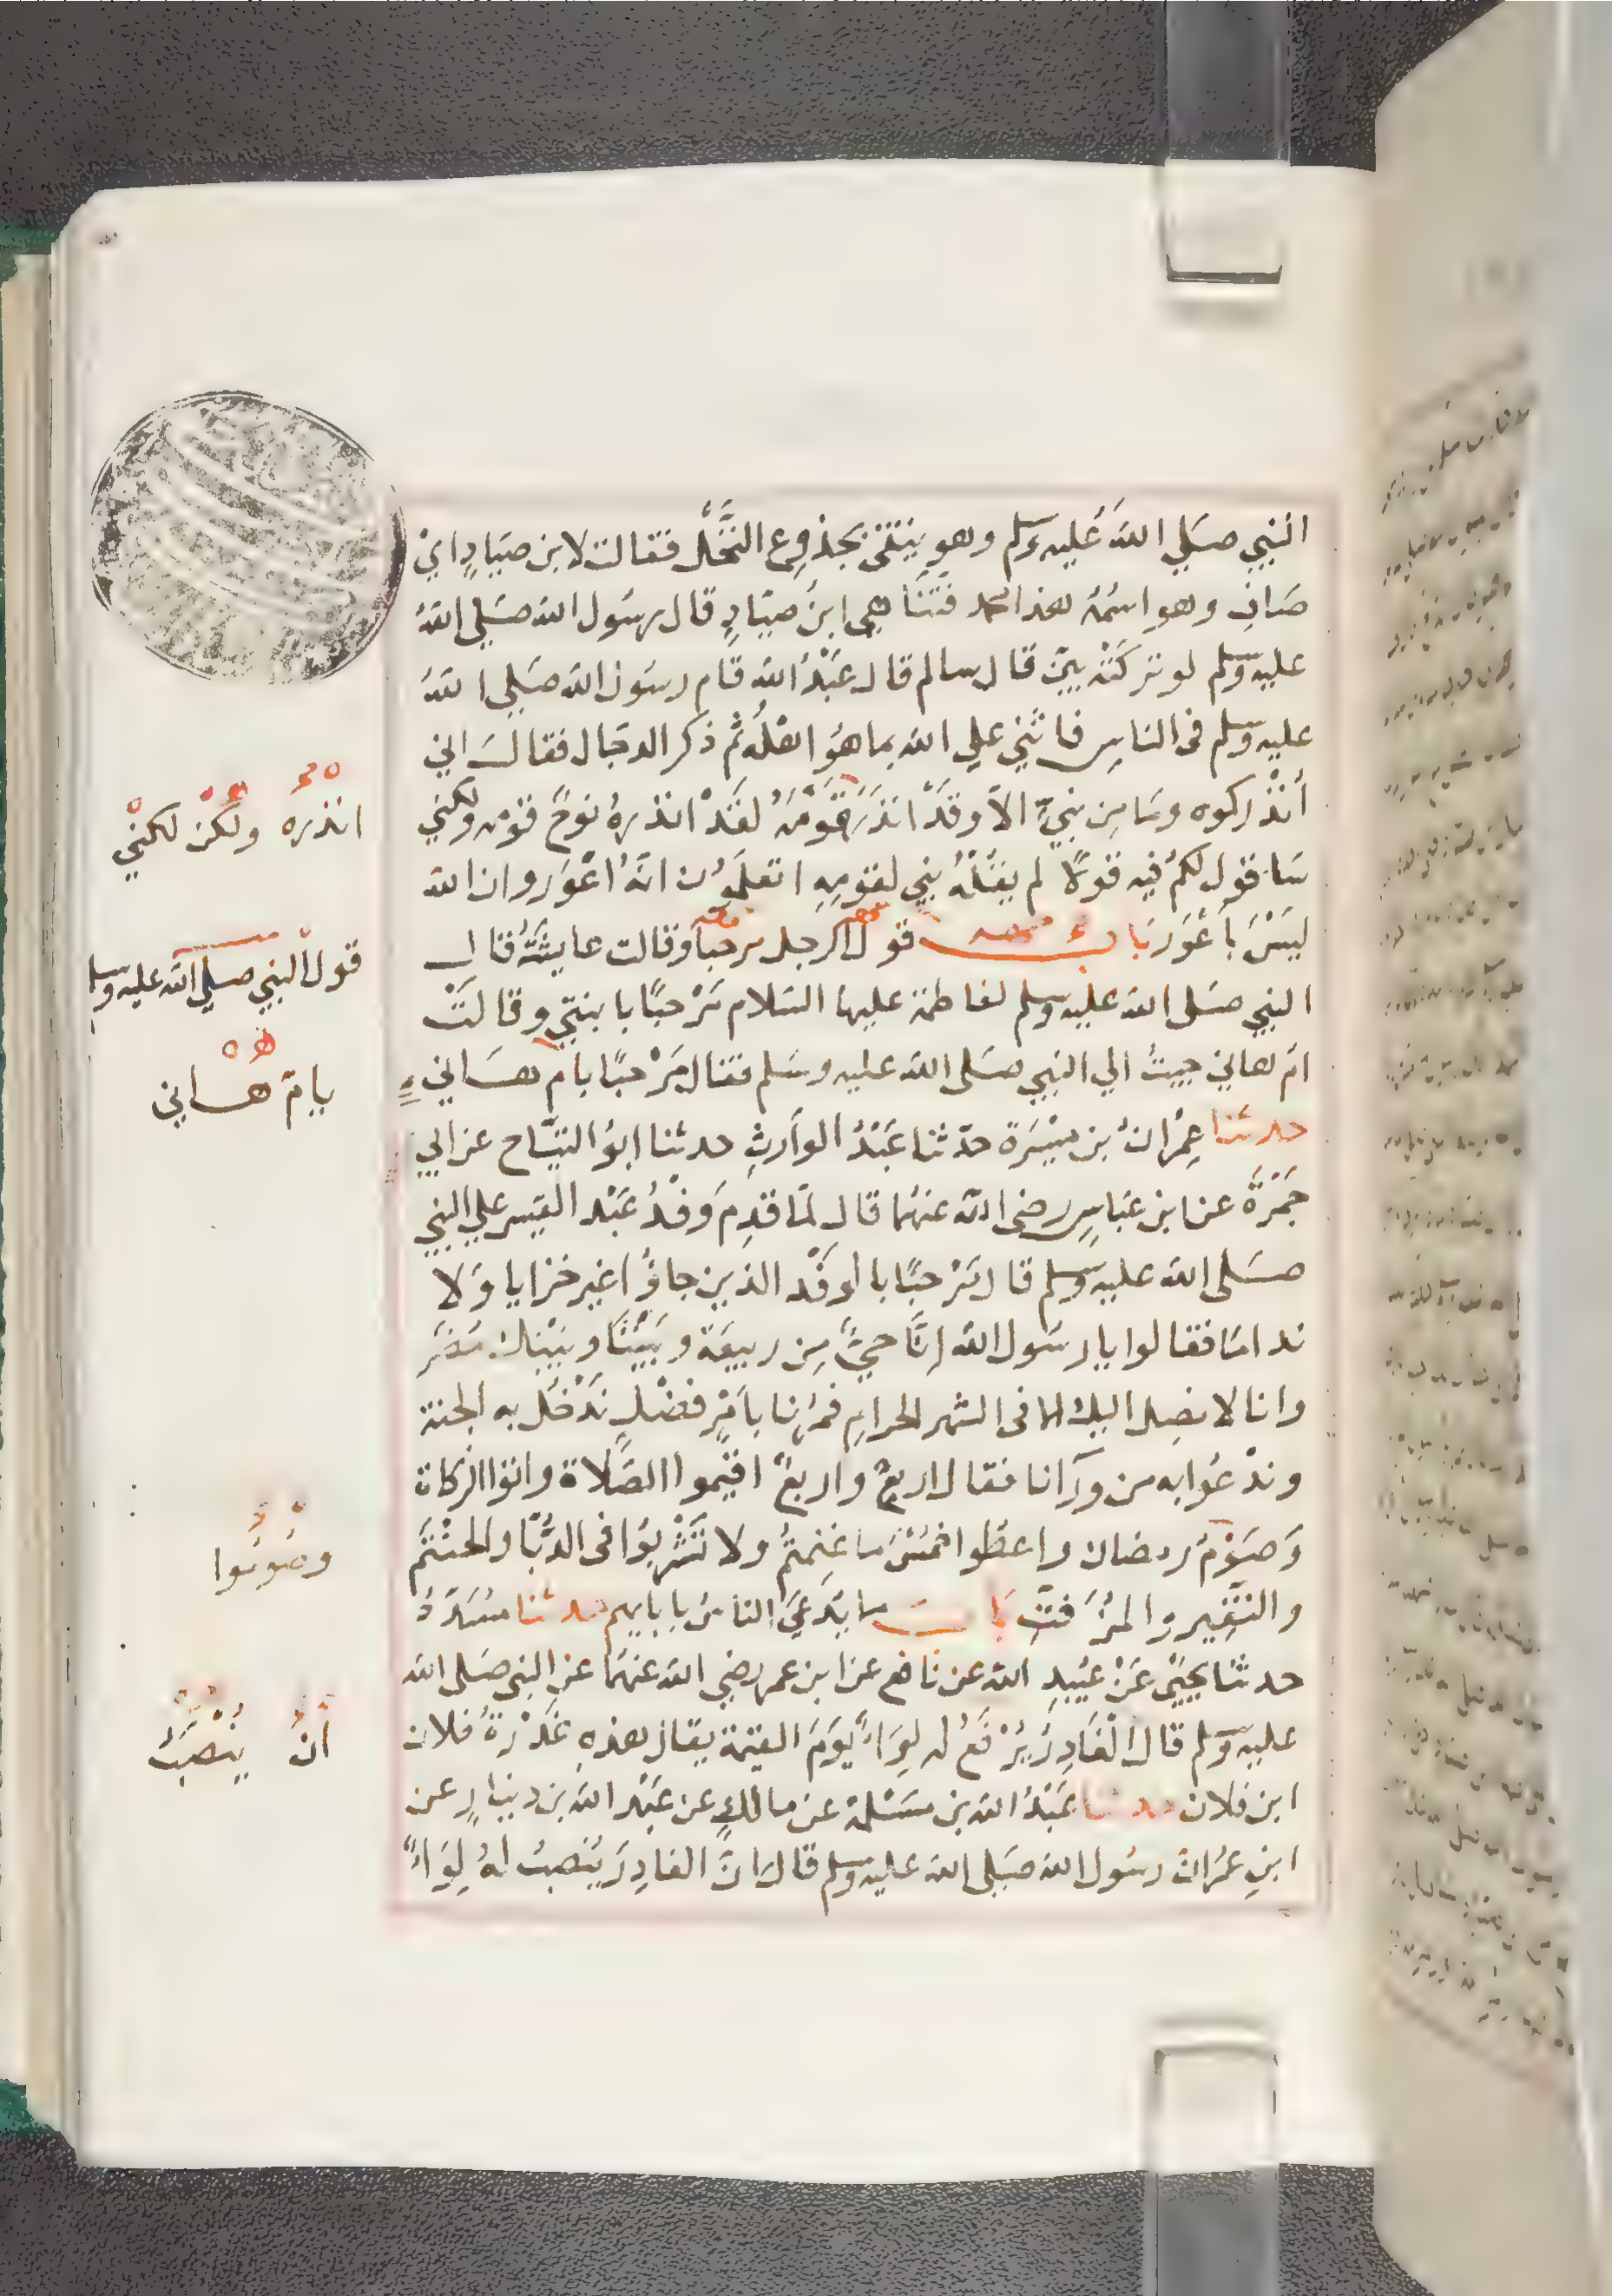 النبي صَلي اللهُ عَليه وسلم وهو يتقي بجذوع النَّخْل فقالت لابن صَيادٍ اي
صَافِ وهو اسْمُهُ هذا محمد فَتَنَاهي ابنُ صيَّادٍ قال رسُول الله صَلي اللهُ
عليه وسلم لو تركَتْه بيَّن قال سالم قال عَبْدُ الله قام رسُول الله صَلي اللهُ
عليه وسلم فى الناسِ فاثني علي الله بما هُو اهلُه ثم ذكر الدجال فقال اني
أنْذركموه ومَا مِن نبيٍّ الا وقَدْ انذرَ قَوْمَهُ لقَدْ انذرهُ نوحٌ قومه ولكني
سَاقول لكمُ فيه قولاً لم يقُلْهُ نبي لقومِهِ اتعلَمُون انَّهُ اعْوَر وان الله
ليسَ بأعْوَر بَاب قول الرجل مرحبًا وقالت عايشةُ قال
النبي صَلى الله عليه وسلم لفاطمة عليها السَلام مَرْحبًا بابنتي وقالتْ
ام هاني جيتُ الي النبي صَلى الله عليه وسَلم فقال مَرْحبًا بام هَاني
حدثنا عِمْرانُ بن مَيْسَرَة حدّثنا عَبْدُ الوارثِ حدثنا ابُو التيَّاح عن ابي
جَمْرَةَ عن ابن عَباسٍ رضى الله عنهُما قال لمّا قدِمَ وَفْدُ عَبْد القيس علي النبي
صَلى الله عليه وسلم قال مَرْحبًا بالوفْد الذين جاؤُا غيرَ خزايا وَلا
نداما فقالوا يا رسَول الله إنَّا حيٌّ مِن ربيعَة وبَيْنَنَا وبَيْنك مُضَرُ
وانا لا نصِل اليك الا فى الشهر الحرامِ فمُرْنا بامْرٍ فصْلٍ نَدْخُل به الجنة
وندْعُوا به من ورآنا فقال اربعٌ واربعٌ اقيموا الصَّلاة واتوا الزكاة
وَصَوْمُ رمضان واعطُوا خمُسَ ما غنمتمُ ولا تَشْربُوا فى الدُّبَّا والحنْتَم
والنَّقِير والمزَفَّتِ بَاب ما يُدْعَي الناسُ بابايهم حدثنا مسَدَدٌ
حدثنا يحيَى عَنْ عُبَيدِ الله عن نافع عن ابن عمر رضي الله عنهُما عن النبي صَلى الله
عليه وسلم قال الْغَادِرُ يُرْفَعُ له لِوَاءٌ يَوْمَ القيمة يقال هذه غَدْرَةُ فلان
ابن فلان حدثنا عَبْدُ الله بن مسَلمة عن مالكٍ عن عَبْد الله بن دينارٍ عن
ابنِ عمُر انّ رسُول الله صَلى الله عليه وسلم قال انَّ الغادِرَ يُنْصَبُ لهُ لِوَاءٌ
انذره ولكن لكني
قول النبي صلي الله عليه وسلم
يا امّ هاني
وصُومُوا
أنّ يُنْصَبُ